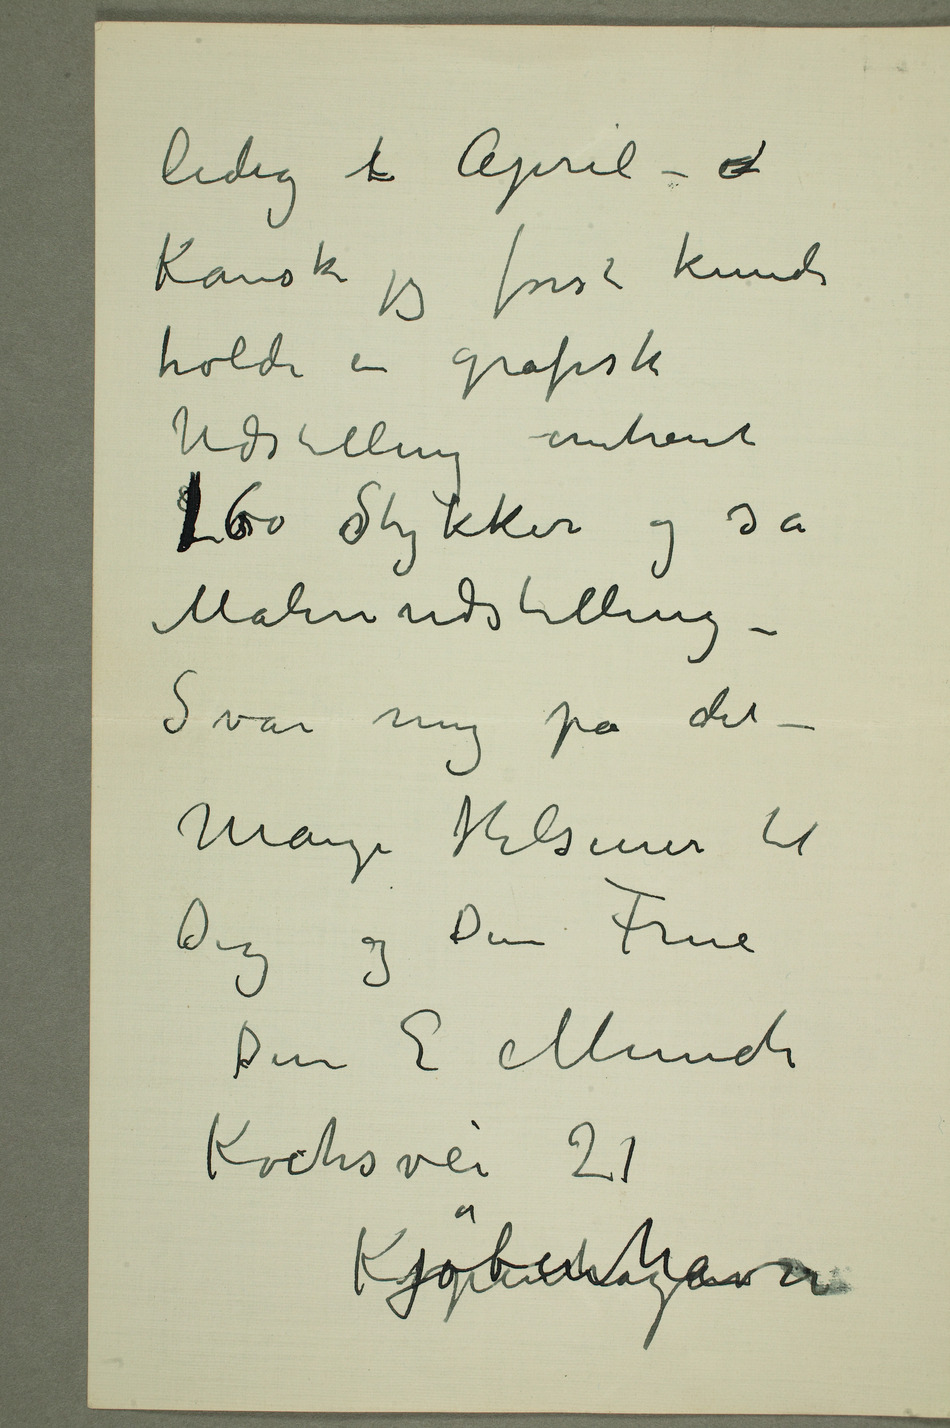 ledig t April –
Kanske jeg først kunde
holde en grafisk
Udstilling omtrent
160 Stykker og så
Maleriudstilling –
Svar mig på det –
Mange Hilsener til
Dig og Din Frue
Din E Munch
Kochsvei 21
Kjöbenhavn